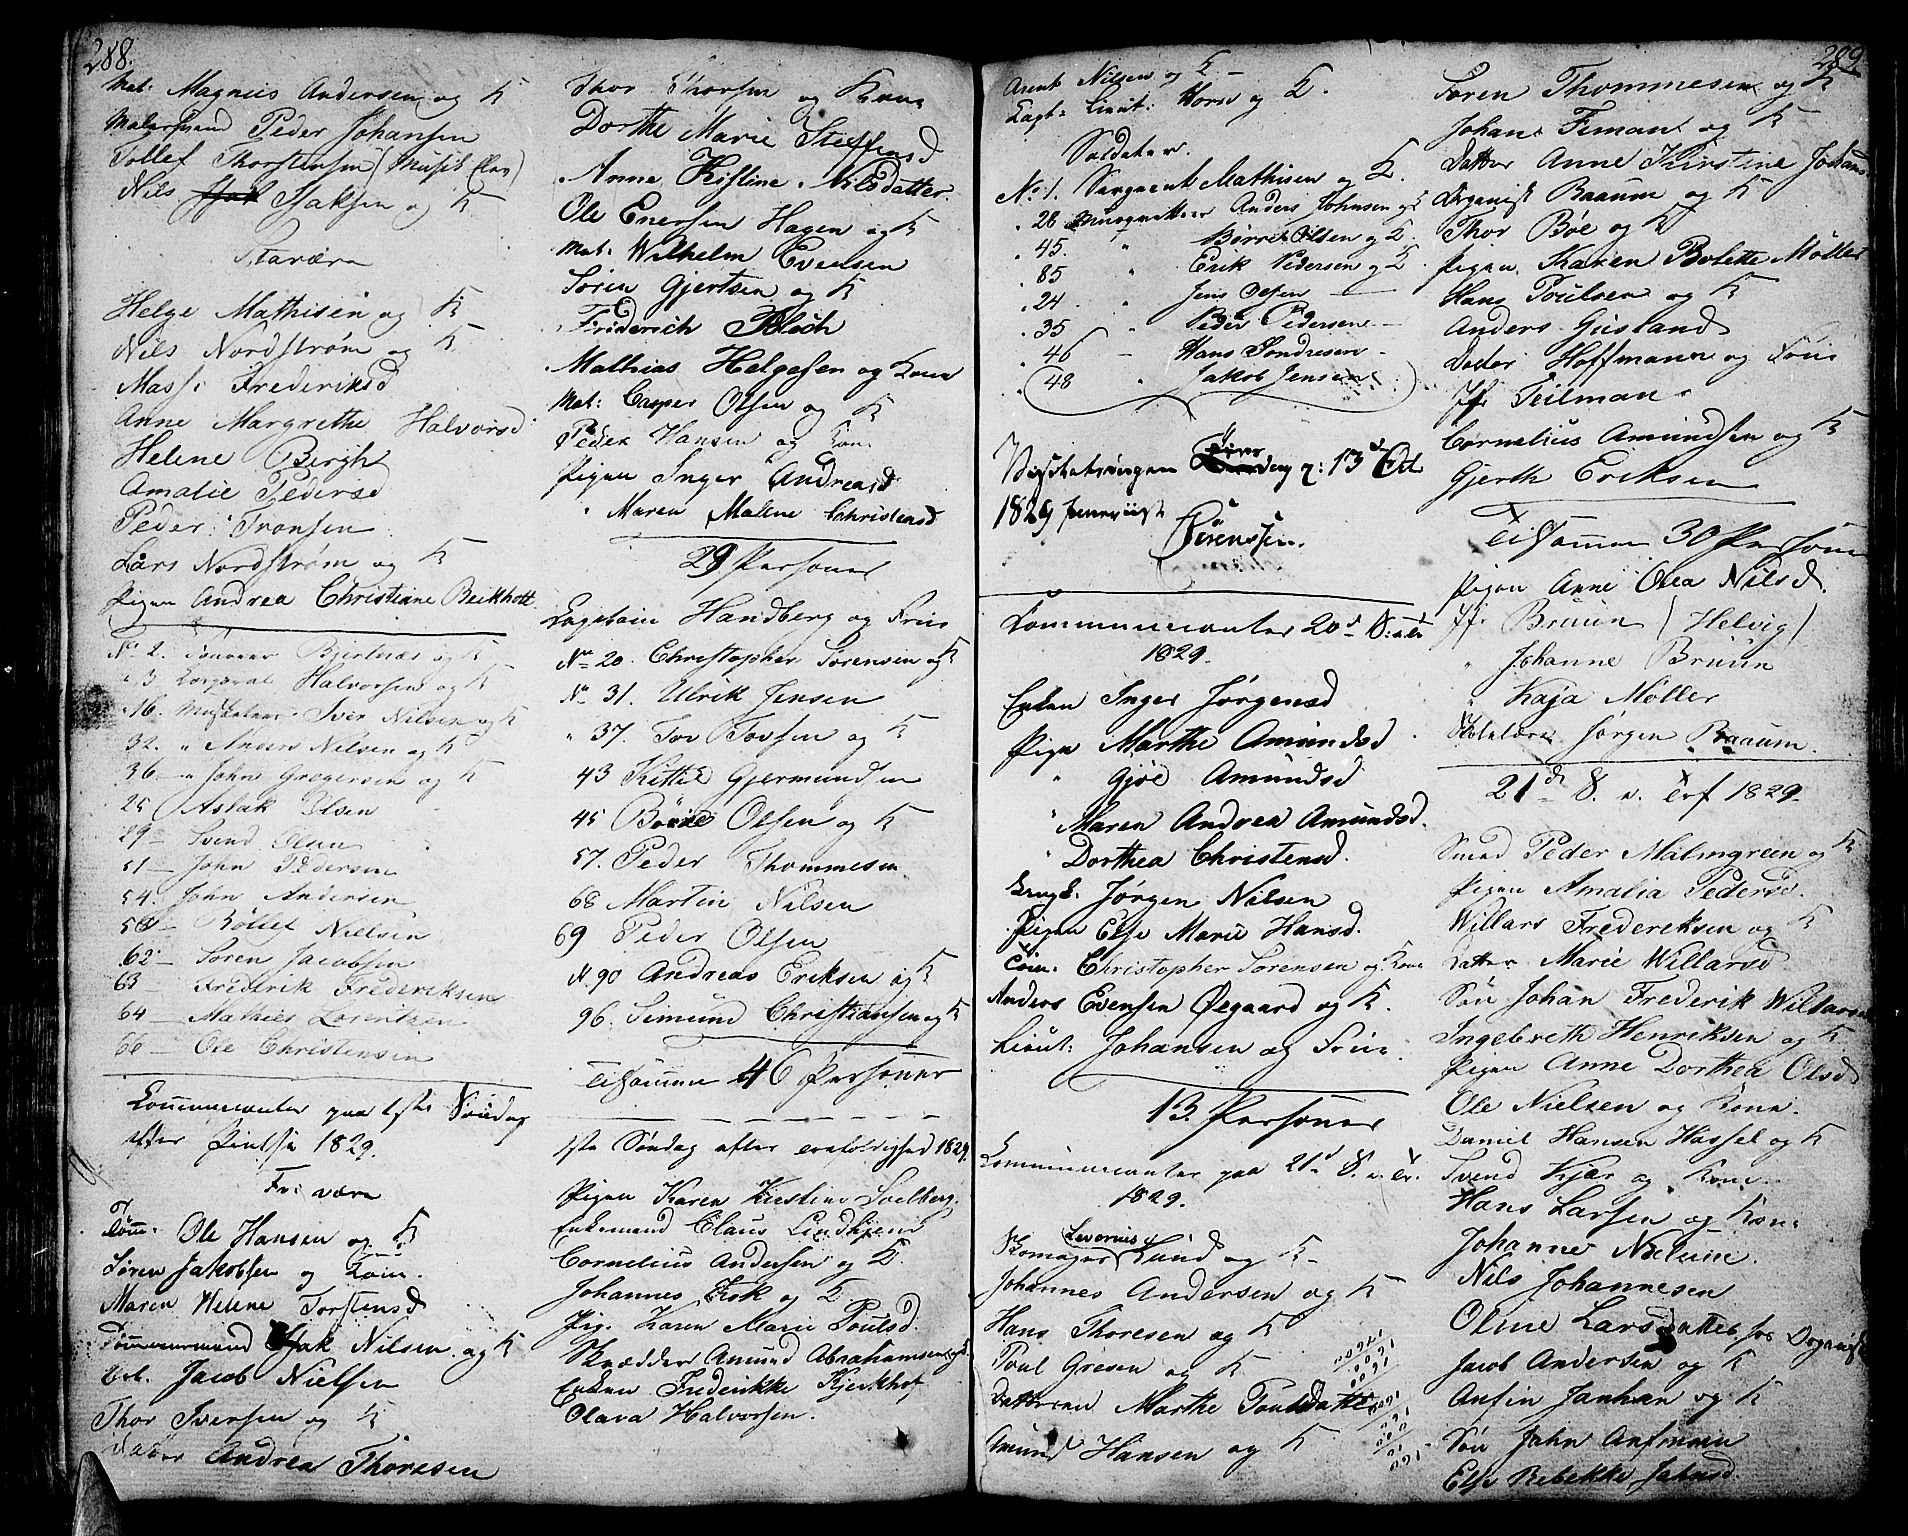 288.
Mat: Magnus Andersen og K
Malersvend Peder Johansen
Tollef Thorstensen (Musik Elev)
Nils Isaksen og K
Helge Mathisen og K
Nils Nordstrøm og K
Mass: Frederiksd
Anne Margrethe Halvorsd
Helene Bergh
Amalie Pedersd
Peder Tronsen
Lars Nordstrøm og K
Pigen Andrea Christiane Beikholt
No 2. Bjertnæs og K
" 3 Corporal Halvorsen og K
" 16. Iver Nilsen og K
32. " Anders Nilsen og K
36 " John Gregersen og K
25 Aslak Olsen
29 Svend Olsen
51 John Pedersen
54. John Andersen
58 Rollef Nielsen
62 Søren Jacobsen
63 Frederik Frederiksen
64 Mathies Lorentzen
66 Ole Christensen
Communicanter paa 1ste Søndag
efter Pintse 1829.
Fri være
Tøm: Ole Hansen og K
Søren Jakobsen og Kone.
Maren Helene Torstensd
Tømmermand Isak Nilsen og K
Arb. Jacob Nielsen
Thor Iversen og K
Datter Andrea Thoresen
Thor Thorsen og Kone
Dorthe Marie Steffensd
Anne Kistine Nilsdatter.
Ole Enersen Hagen og K
Mat: Wilhelm Evensen
Søren Gjertsen og K
Friderich Bloch
Mathias Helgesen og Kone
Mat: Casper Olsen og K
Peder Hansen og Kone
Pigen Inger Andreasd
" Maren Malene Christensd
29 Personer
Capitain Handberg og Frue
No 20. Christopher Sørensen og K
No 31. Ulrik Jensen
" 37. Tov Tovsen og K
43 Kittil Gjermundsen
45 Børre Olsen og K
57. Peder Thommesen
68 Martin Nilsen
69 Peder Olsen
N. 90 Andreas Eriksen og K
96. Simund Christiansen og K
Tilsammen 46 Personer
1ste Søndag efter trefoldighed 1829.
Pigen Karen Kirstine Soelberg.
Enkemand Claus Lindkjend
Cornelius Andersen og K.
Johannes Kok og K
Pig. Karen Marie Poulsd.
Skrædder Amund Abrahamsen og K.
Enken Frederikke Kjerkhof
Olava Halvorsen.
289.
Arent Nilsen og K
Capt: Lieut: Horse og K.
Soldater.
No. 1. Sergeant Mathisen og K.
" 28 Musqvetteer Anders Johnsen og K
" 45. " Børre Olsen og K.
" 85 " Erik Pedersen og K
" 24 " Jens Olsen
" 35 " Peder Pedersen
" 46 Hans Sondresen
" 48 " Jakob Jensen
13de Oct
1829
Sørenssen.
Communicanter 20d S: e. Tr
1829.
Enken Inger Jørgensd
Pige Marthe Amundsd
" Gjøe Amundsd
" Maren Andrea Amundsd.
" Dorthea Christensd.
Jørgen Nilsen
Pigen Else Marie Hansd.
Christopher Sørensen og Kone
Anders Evensen Øegaard og K.
Lieut: Johansen og Frue.
13. Personer
Communicanter paa 21d S. e. Tr.
1829.
Skomager Levorius Lund og K
Johannes Andersen og K
Hans Thoresen og K
Poul Gresen og K
Datteren Marthe Poulsdatter
Amund Hansen og K
Søren Thommesen og K
Johan Feman og K
Datter Anne Kirstine Johans
Organist Baaum og K
Thor Bøe og K
Pigen Karen Bolette Møller
Hans Poulsen og K
Anders Gusland
Doctor Hoffmann og Frue
Jfr Teilman
Cornelius Amundsen og K
Gjerth Eriksen
Tilsammen 30 Personer
Pigen Anne Olea Nilsd.
Jfr Bruun (Helvig)
" Johanne Bruun
" Kaja Møller
Skolelærer Jørgen Baaum.
21de S. e. Tref 1829
Smed Peder Malmgreen og K
Pigen Amalia Pedersd.
Willars Frederiksen og K
Datter Marie Willarsd
Søn Johan Frederik Willarsen
Ingebreth Henriksen og K
Pigen Anne Dorthea Olsd
Ole Nielsen og Kone.
Daniel Hansen Hassel og K
Svend Kjær og Kone
Hans Larsen og Kone
Johannes Nielsen
Nils Johannesen
Oline Larsdatter hos Organist
Jacob Andersen og K
Anfin Janhan og K
Søn John Anfinsen
Else Rebekke Johnsd.